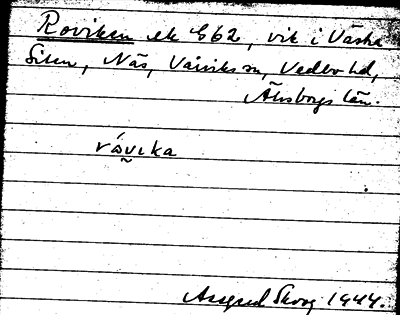 Roviken ek E62, vik i Västra
Silen, Nås, Vårviks sn, Vedbo hd,
Älvsborgs län.
råvıka
Assgerd Skoog 1944.